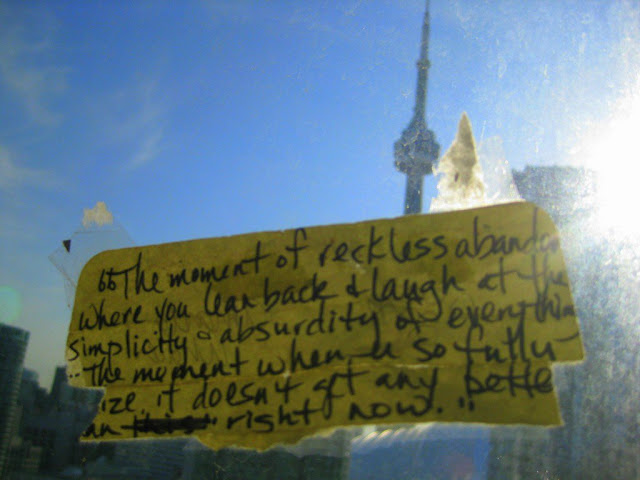 “The moment of reckless abandon
where you lean back & laugh at the
simplicity & absurdity of everything
.. The moment when u so fully
ize it doesn't get any bette
an right now. ..